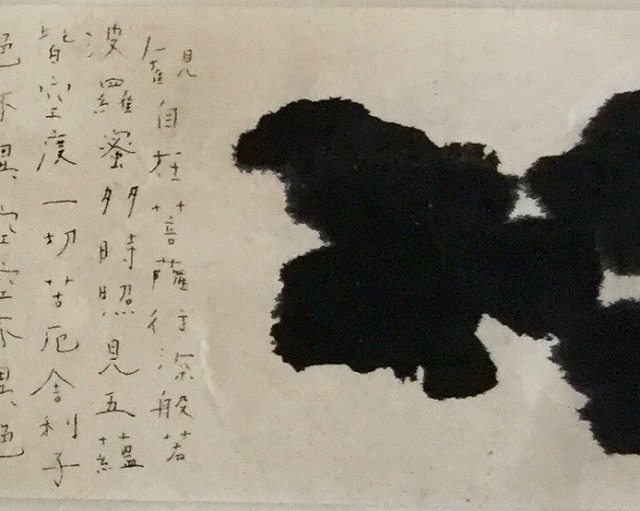 觀自在菩薩行深般若
波羅蜜多時照見五蘊
皆空度一切苦厄舍利子
色不異空空不異色